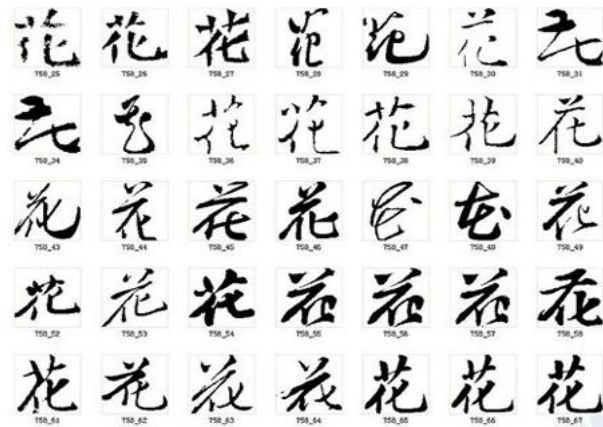 花 花 花 花 花 花 花
T58_25 T58_26 T58_27 T58_28 T58_29 T58_30 T58_31
花 花 花 花 花 花 花
T58_34 T58_35 T58_36 T58_37 T58_38 T58_39 T58_40
花 花 花 花 花 花 花
T58_43 T58_44 T58_45 T58_46 T58_47 T58_48 T58_49
花 花 花 花 花 花 花
T58_52 T58_53 T58_54 T58_55 T58_56 T58_57 T58_58
花 花 花 花 花 花 花
T58_61 T58_62 T58_63 T58_64 T58_65 T58_66 T58_67